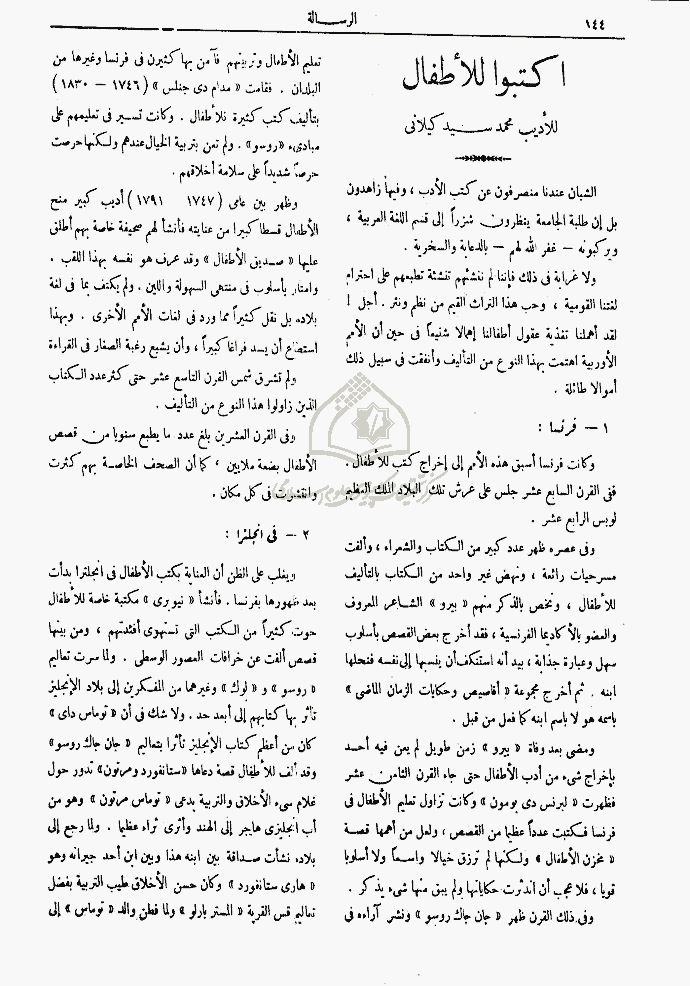 ١٤٤
الرسالة
اكتبوا للأطفال
للأديب محمد سيد كيلانى
الشبان عندنا منصرفون عن كتب الأدب ، وفيها زاهدون
بل إن طلبة الجامعة ينظرون شزراً إلى قسم اللغة العربية ،
ويركبونه – غفر الله لهم – بالدعابة والسخرية .
ولا غرابة فى ذلك فإننا لم ننشئهم تنشئة تطبعهم على احترام
لغتنا القومية ، وحب هذا التراث القيم من نظم ونثر . أجل !
لقد أهملنا تغذية عقول أطفالنا إهمالا شنيعاً فى حين أن الأمم
الأوربية اهتمت بهذا النوع من التأليف وأنفقت فى سبيل ذلك
أموالا طائلة .
١ – فرنسا :
وكانت فرنسا أسبق هذه الأمم إلى إخراج كتب للأطفال .
ففى القرن السابع عشر جلس على عرش تلك البلاد الملك العظيم
لويس الرابع عشر .
وفى عصره ظهر عدد كبير من الكتاب والشعراء ، وألفت
مسرحيات رائعة ، ونهض غير واحد من الكتاب بالتأليف
للأطفال ، ونخص بالذكر منهم « بيرو » الشاعر المعروف
والعضو بالأكاديما الفرنسية ، فقد أخرج بعض القصص بأسلوب
سهل وعبارة جذابة ، بيد أنه استنكف أن ينسبها إلى نفسه فنحلها
ابنه . ثم أخرج مجموعة « أقاصيص وحكايات الزمان الماضى »
باسمه هو لا باسم ابنه كما فعل من قبل .
ومضى بعد وفاة « بيرو » زمن طويل لم يعن فيه أحد
بإخراج شىء من أدب الأطفال حتى جاء القرن الثامن عشر
فظهرت « لبرنس دى بومون » وكانت تزاول تعليم الأطفال فى
فرنسا فكتبت عدداً عظيما من القصص ، ولعل من أهمها قصة
« مخزن الأطفال » ولكنها لم ترزق خيالا واسعاً ولا أسلوبا
قويا ، فلا عجب أن اندثرت حكاياتها ولم يبق منها شىء يذكر .
وفى ذلك القرن ظهر « جان جاك روسو » ونشر آراءه فى
تعليم الأطفال وتربيتهم فآمن بها كثيرون فى فرنسا وغيرها من
البلدان . فقامت « مدام دى جنلس » ( ١٧٤٦ – ١٨٣٠ )
بتأليف كتب كثيرة للأطفال . وكانت تسير فى تعليمهم على
مبادىء « روسو » . ولم تعن بتربية الخيال عندهم ولكنها حرصت
حرصاً شديداً على سلامة أخلاقهم .
وظهر بين عامى ( ١٧٤٧ ١٧٩١ ) أديب كبير منح
الأطفال قسطا كبيرا من عنايته فأنشأ لهم صحيفة خاصة بهم أطلق
عليها « صديق الأطفال » وقد عرف هو نفسه بهذا اللقب .
وامتاز بأسلوب فى منتهى السهولة واللين . ولم يكتف بما فى لغة
بلاده بل نقل كثيراً مما ورد فى لغات الأمم الأخرى . وبهذا
استطاع أن يسد فراغا كبيراً ، وأن يشبع رغبة الصغار فى القراءة
ولم تشرق شمس القرن التاسع عشر حتى كثر عدد الكتاب
الذين زاولوا هذا النوع من التأليف .
وفى القرن العشرين بلغ عدد ما يطبع سنويا من قصص
الأطفال بضعة ملايين ، كما أن الصحف الخاصة بهم كثرت
وانتشرت فى كل مكان .
٢ – فى انجلترا :
ويغلب على الظن أن العناية بكتب الأطفال فى انجلترا بدأت
بعد ظهورها بفرنسا . فأنشأ « نيوبرى » مكتبة خاصة للأطفال
حوت كثيراً من الكتب التى تستهوى أفئدتهم ، ومن بينها
قصص ألفت عن خرافات العصور الوسطى . ولما سرت تعاليم
« روسو » و « لوك » وغيرهما من المفكرين إلى بلاد الإنجليز
تأثر بها كتابهم إلى أبعد حد . ولا شك فى أن « توماس داى »
كان من أعظم كتاب الإنجليز تأثرا بتعاليم « جان جاك روسو »
وقد ألف للأطفال قصة دعاها « ستانفورد ومرتون » تدور حول
غلام سىء الأخلاق والتربية يدعى « توماس مرتون » وهو من
أب انجليزى هاجر إلى الهند وأثرى ثراء عظيما . ولما رجع إلى
بلاده نشأت صداقة بين ابنه هذا وبين ابن أحد جيرانه وهو
« هارى ستانفورد » وكان حسن الأخلاق طيب التربية بفضل
تعاليم قس القرية « المستر بارلو » ولما فطن والد « توماس » إلى